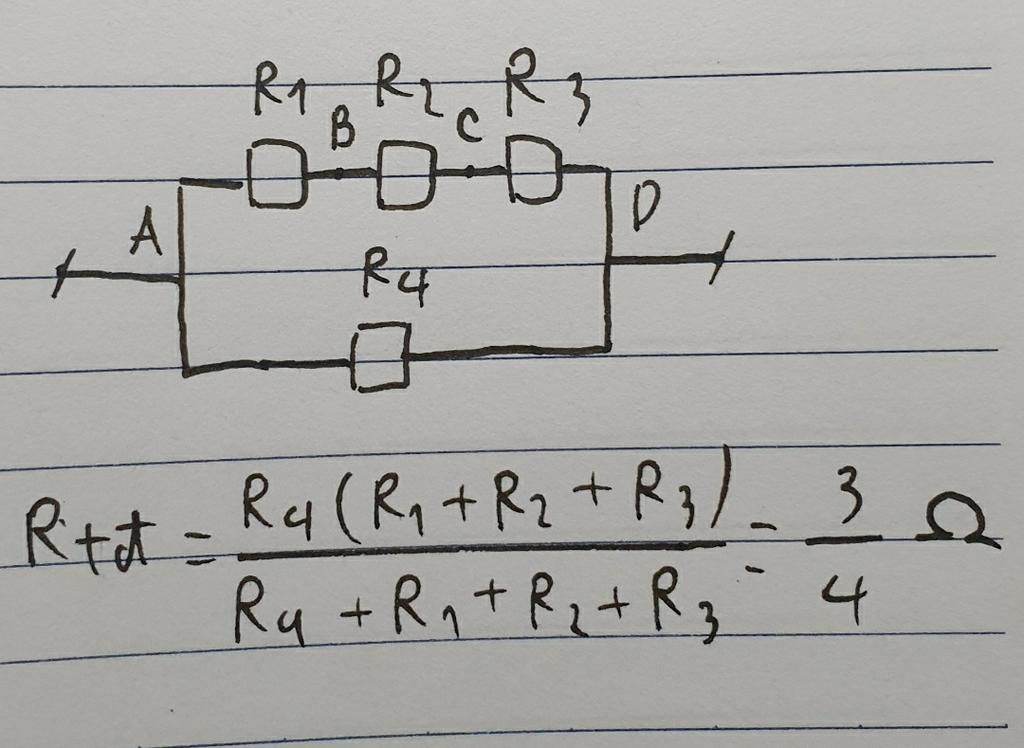 R1 R2 R3
B C
A D
R4
Rtđ = R4(R1+R2+R3) / R4+R1+R2+R3 = 3/4 Ω